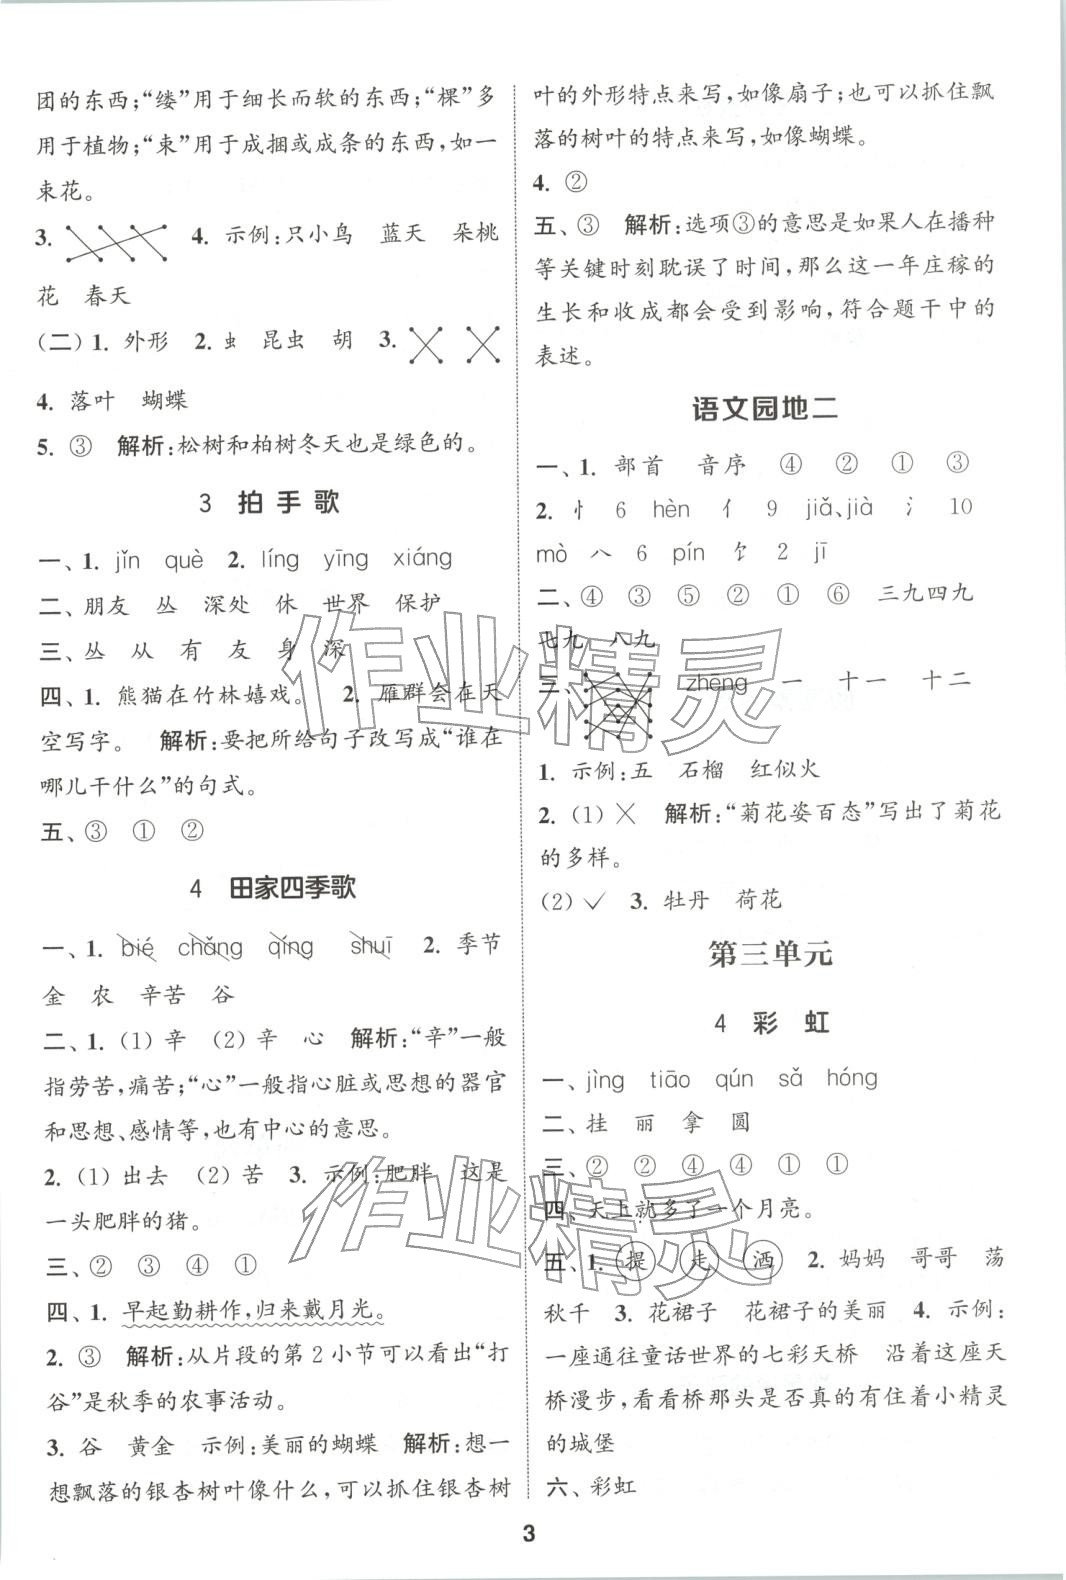 团的东西;“缕”用于细长而软的东西;“棵”多
用于植物;“束”用于成捆或成条的东西,如一
束花。
3. 4. 示例:只小鸟 蓝天 朵桃
花 春天
(二)1. 外形 2. 虫 昆虫 胡 3.
4. 落叶 蝴蝶
5. ③ 解析:松树和柏树冬天也是绿色的。
3 拍手歌
一、1. jǐn què 2. líng yīng xiáng
二、朋友 丛 深处 休 世界 保护
三、丛 从 有 友 身 深
四、1. 熊猫在竹林嬉戏。 2. 雁群会在天
空写字。 解析:要把所给句子改写成“谁在
哪儿干什么”的句式。
五、③ ① ②
4 田家四季歌
一、1. bié chǎng qīng shuī 2. 季节
金 农 辛苦 谷
二、1. (1) 辛 (2) 辛 心 解析:“辛”一般
指劳苦,痛苦;“心”一般指心脏或思想的器官
和思想、感情等,也有中心的意思。
2. (1) 出去 (2) 苦 3. 示例:肥胖 这是
一头肥胖的猪。
三、② ③ ④ ①
四、1. 早起勤耕作,归来戴月光。
2. ③ 解析:从片段的第 2 小节可以看出“打
谷”是秋季的农事活动。
3. 谷 黄金 示例:美丽的蝴蝶 解析:想一
想飘落的银杏树叶像什么,可以抓住银杏树
叶的外形特点来写,如像扇子;也可以抓住飘
落的树叶的特点来写,如像蝴蝶。
4. ②
五、③ 解析:选项③的意思是如果人在播种
等关键时刻耽误了时间,那么这一年庄稼的
生长和收成都会受到影响,符合题干中的
表述。
语文园地二
一、1. 部首 音序 ④ ② ① ③
2. 忄 6 hèn 亻 9 jiǎ、jià 氵 10
mò 八 6 pín 饣 2 jī
二、④ ③ ⑤ ② ① ⑥ 三九四九
七九 八九
三、 zhēng 一 十一 十二
1. 示例:五 石榴 红似火
2. (1) ✕ 解析:“菊花姿百态”写出了菊花
的多样。
(2) ✓ 3. 牡丹 荷花
第三单元
4 彩 虹
一、jìng tiāo qún sǎ hóng
二、挂 丽 拿 圆
三、② ② ④ ④ ① ①
四、天上就多了一个月亮。
五、1. 提 走 洒 2. 妈妈 哥哥 荡
秋千 3. 花裙子 花裙子的美丽 4. 示例:
一座通往童话世界的七彩天桥 沿着这座天
桥漫步,看看桥那头是否真的有住着小精灵
的城堡
六、彩虹
3
作业精灵
作业精灵